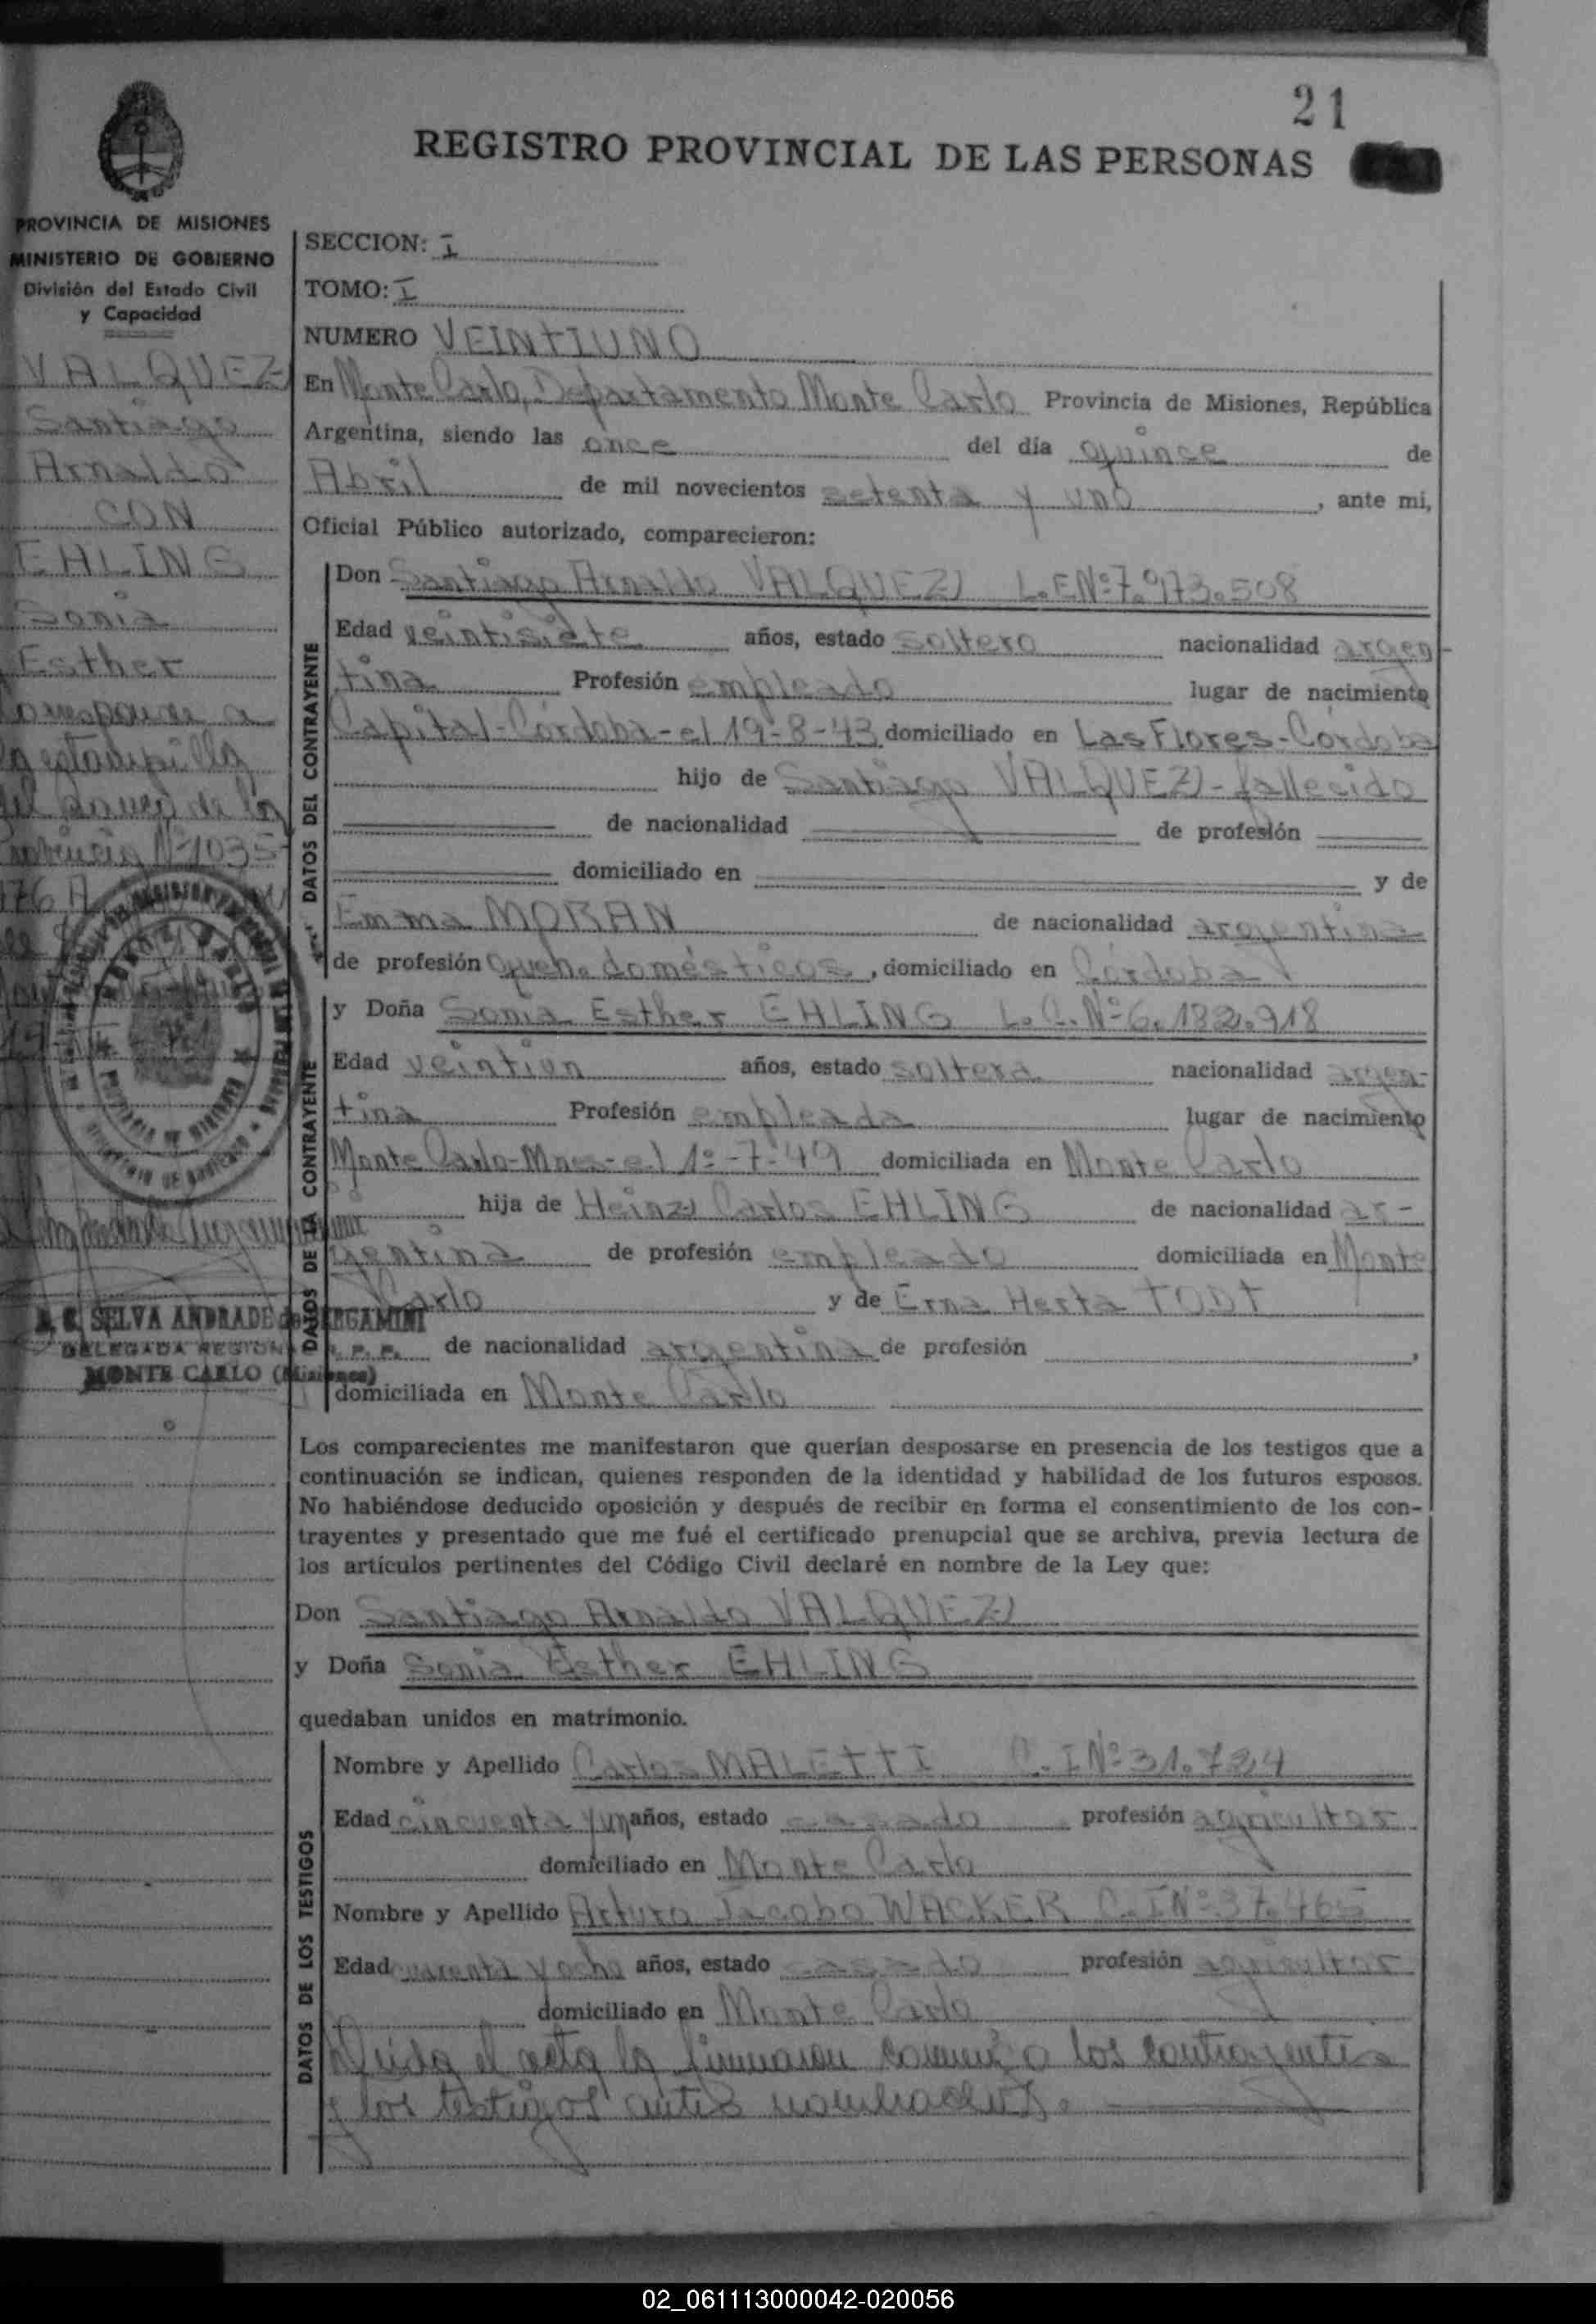 21
REGISTRO PROVINCIAL DE LAS PERSONAS
PROVINCIA DE MISIONES
MINISTERIO DE GOBIERNO
División del Estado Civil
y Capacidad
VALQUEZ
Santiago
Arnaldo
CON
EHLING
Sonia
Esther
SELVA ANDRADE de BERGAMINI
MONTE CARLO (Misiones)
SECCION: I
TOMO: I
NUMERO VEINTIUNO
En Monte Carlo, Departamento Monte Carlo Provincia de Misiones, República
Argentina, siendo las once del día quince de
Abril de mil novecientos setenta y uno, ante mi,
Oficial Público autorizado, comparecieron:
DATOS DEL CONTRAYENTE
Don Santiago Arnaldo VALQUEZ L.E.Nº 7.973.508
Edad veintisiete años, estado soltero nacionalidad argen-
tina Profesión empleado lugar de nacimiento
Capital-Córdoba-el 19-8-43 domiciliado en Las Flores-Córdoba
hijo de Santiago VALQUEZ-fallecido
de nacionalidad de profesión
domiciliado en y de
Emma MORAN de nacionalidad argentina
de profesión Queh. domésticos, domiciliado en Córdoba
DATOS DE LA CONTRAYENTE
y Doña Sonia Esther EHLING L.C.Nº 6.182.918
Edad veintiun años, estado soltera nacionalidad argen-
tina Profesión empleada lugar de nacimiento
Monte Carlo-Mnes-el 1º-7-49 domiciliada en Monte Carlo
hija de Heinz Carlos EHLING de nacionalidad ar-
gentina de profesión empleado domiciliada en Monte
Carlo y de Erna Herta TODT
de nacionalidad argentina de profesión ,
domiciliada en Monte Carlo
Los comparecientes me manifestaron que querían desposarse en presencia de los testigos que a
continuación se indican, quienes responden de la identidad y habilidad de los futuros esposos.
No habiéndose deducido oposición y después de recibir en forma el consentimiento de los con-
trayentes y presentado que me fué el certificado prenupcial que se archiva, previa lectura de
los artículos pertinentes del Código Civil declaré en nombre de la Ley que:
Don Santiago Arnaldo VALQUEZ
y Doña Sonia Esther EHLING
quedaban unidos en matrimonio.
DATOS DE LOS TESTIGOS
Nombre y Apellido Carlos MALETTI C.I Nº 31.724
Edad cincuenta y un años, estado casado profesión agricultor
domiciliado en Monte Carlo
Nombre y Apellido Arturo Jacobo WACKER C.I Nº 37.465
Edad cuarenta y ocho años, estado casado profesión agricultor
domiciliado en Monte Carlo
Leída el acta la firmaron conmigo los contrayentes
y los testigos antes nombrados.
02_061113000042-020056